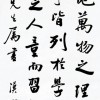 地萬物之理
皆列於學
之人童而習
先生属書